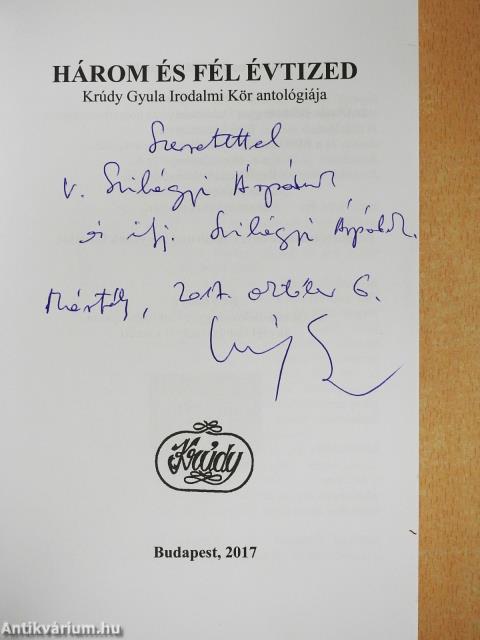 HÁROM ÉS FÉL ÉVTIZED
Krúdy Gyula Irodalmi Kör antológiája
Szeretettel
v. Szilágyi Árpádnak
és ifj. Szilágyi Árpádnak.
Mártély, 2017. október 6.
Krúdy
Budapest, 2017
Antikvárium.hu